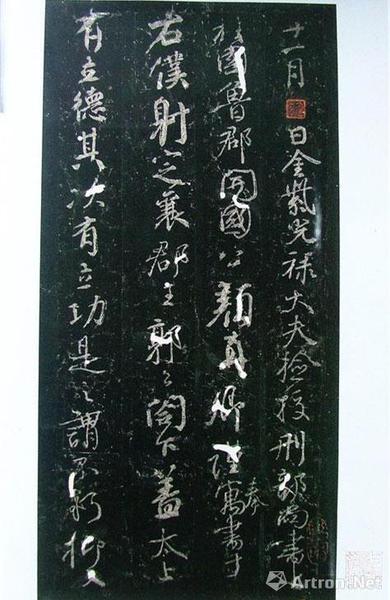 十一月日金紫光祿大夫檢校刑部尚書上
柱國魯郡開國公顏真卿謹奉寓書于
右僕射定襄郡王郭公閣下蓋太上
有立德其次有立功是之謂不朽抑又
Artron.Net